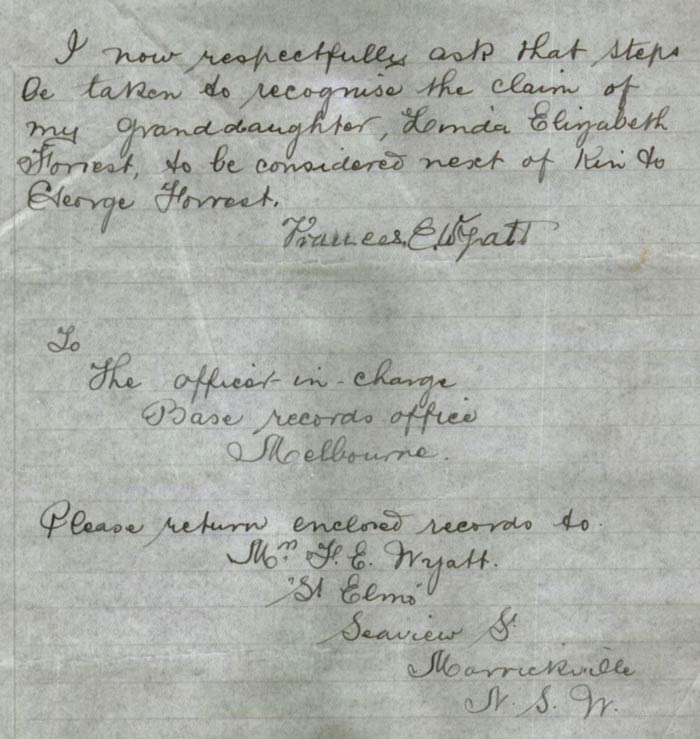 I now respectfully ask that steps
be taken to recognise the claim of
my granddaughter, Linda Elizabeth
Forrest, to be considered next of Kin to
George Forrest.
Frances. E. Wyatt
To
The officer-in-charge
Base records office
Melbourne.
Please return enclosed records to
Mrs F. E. Wyatt.
"St Elmo"
Seaview St
Marrickville
N. S. W.